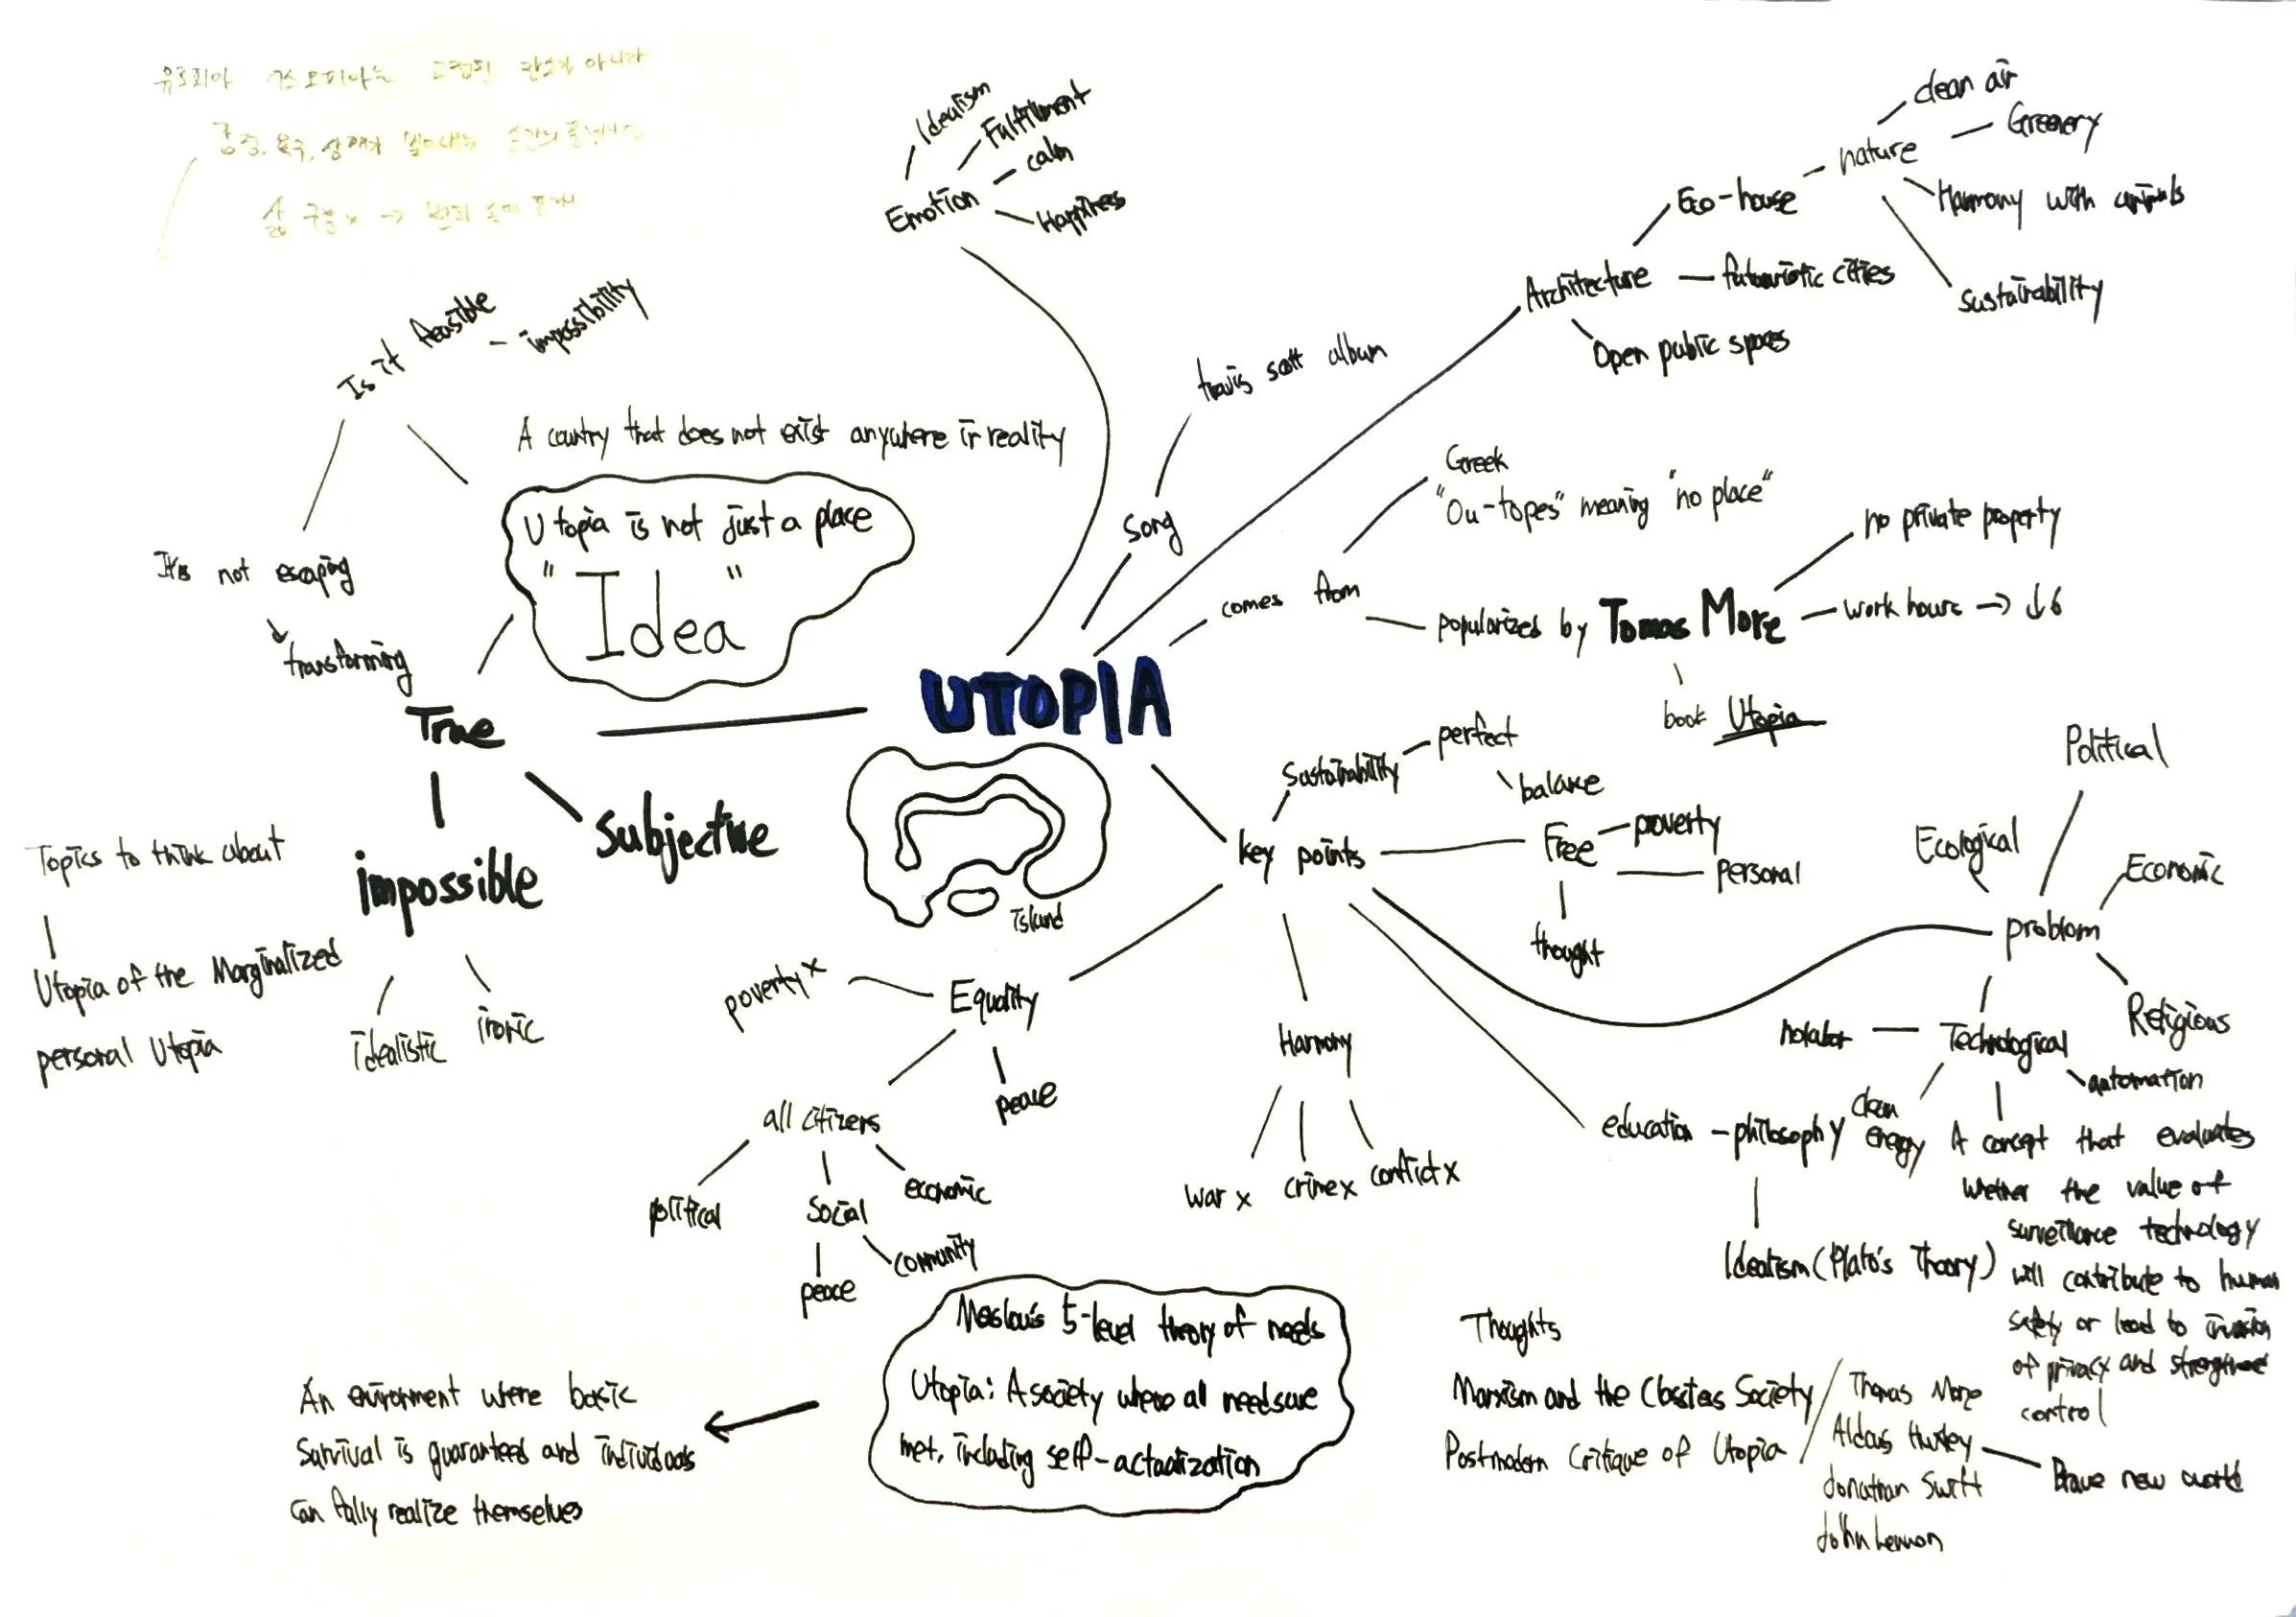 Idealism
Fulfillment
calm
Happiness
Emotion
clean air
Greenery
nature
Harmony with animals
Sustainability
Eco-house
Architecture
futuristic cities
Open public spaces
Is it feasible
impossibility
travis scott album
song
A country that does not exist anywhere in reality
Utopia is not just a place
"Idea"
It's not escaping
transforming
Greek
"Ou-topos" meaning "no place"
comes from
popularized by Tomas More
no private property
work hours → ↓6
book Utopia
UTOPIA
True
Subjective
impossible
idealistic
ironic
Topics to think about
Utopia of the Marginalized
personal Utopia
island
key points
Sustainability
perfect
balance
Free
proverty
personal
thought
Political
Ecological
Economic
problom
Religious
nolabor
Technological
automation
clean
energy
A concept that evaluates
whether the value of
surveillance technology
will contribute to human
safety or lead to invasion
of privacy and
control
education - philosophy
Idealism (Plato's Theory)
Equality
poverty x
peace
all citizens
political
social
economic
peace
community
Harmony
war x
crime x
conflict x
Maslow's 5-level theory of needs
Utopia: A society where all needs are
met, including self-actualization
An enironment where basic
Survival is guaranteed and individuals
can fully realize themselves
Thoughts
Marxism and the Classless Society
Postmodern Critique of Utopia
Thomas More
Aldous Huxley
Brave new world
Jonathan Swift
John Lennon